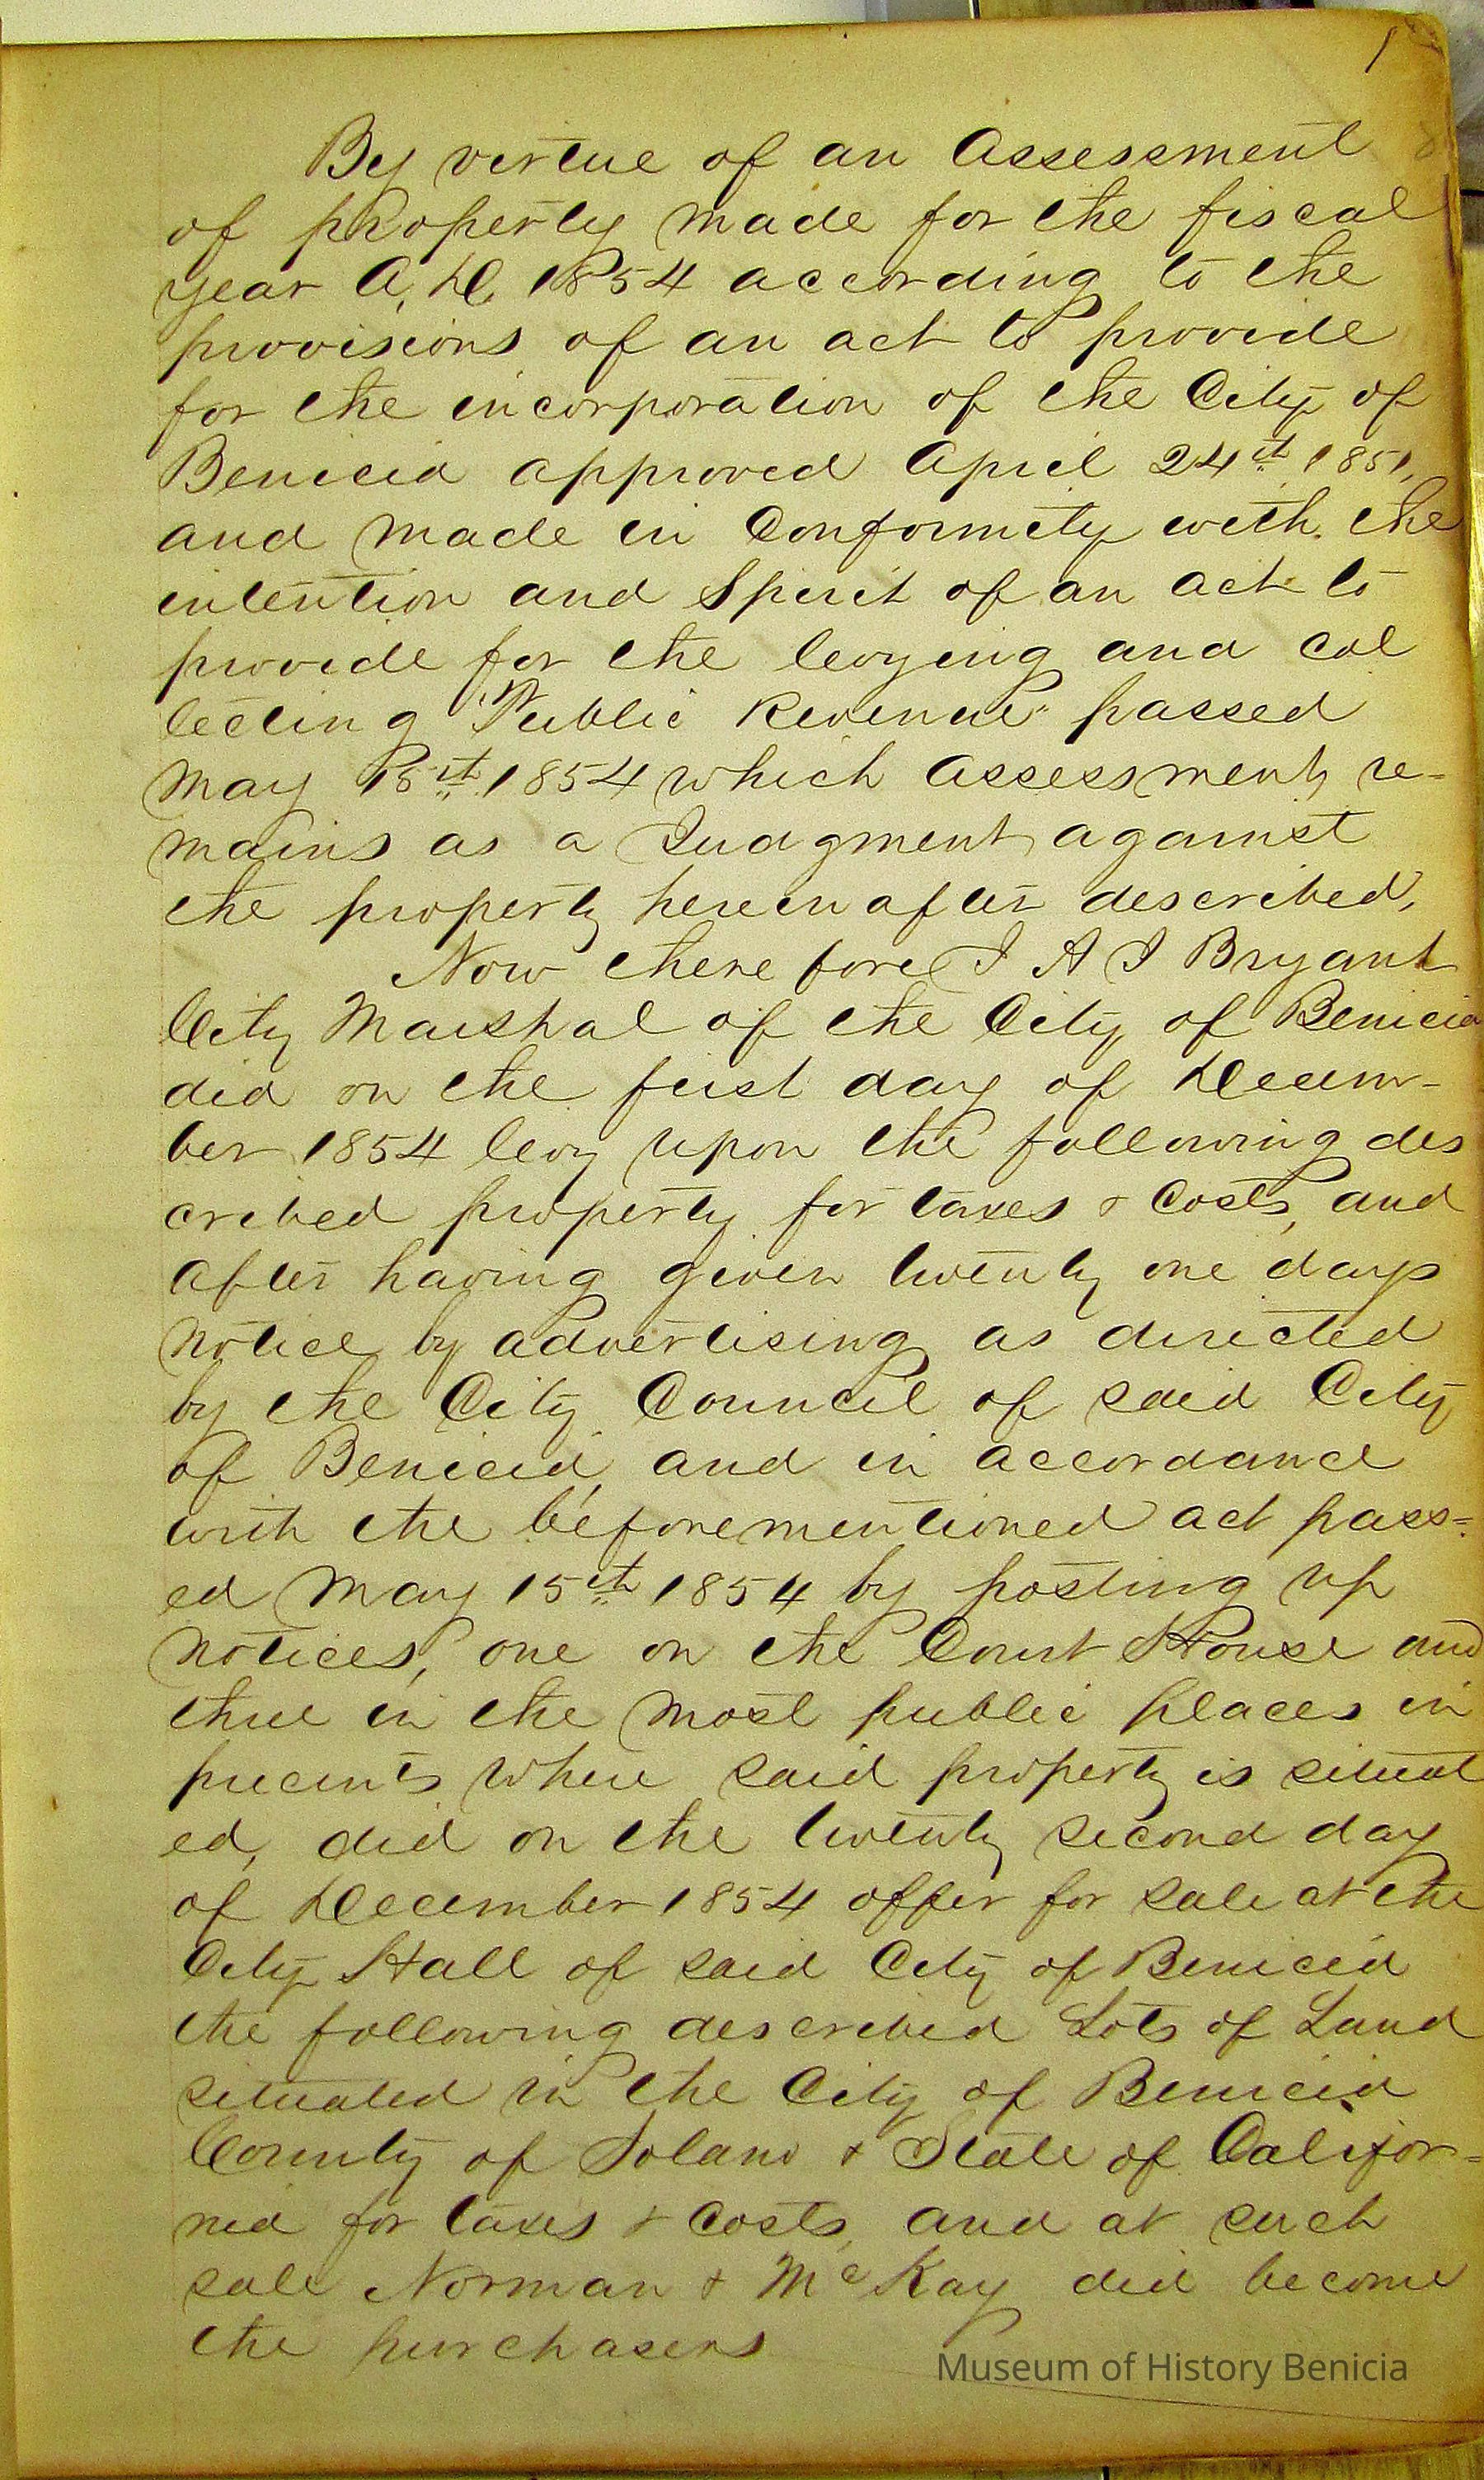 1
By virtue of an Assessment
of property made for the fiscal
year A, D, 1854 according to the
provisions of an act to provide
for the incorporation of the City of
Benicia approved April 24th 1851,
and made in Conformity with the
intention and Spirit of an act to
provide for the levying and col
lecting "Public Revenue" passed
May 15th 1854 which Assessment, re-
mains as a Judgment against
the property herein after described,
Now there fore I A J Bryant
City Marshal of the City of Benicia
did on the first day of Decem-
ber 1854 levy upon the following des
cribed property for taxes & Costs, and
after having given twenty one days
notice by advertising as directed
by the City Council of said City
of Benicia, and in accordance
with the beforementioned act pass=
ed May 15th 1854 by posting up
notices, one on the Court House and
three in the most public places in
precints where said property is situat
ed, did on the twenty second day
of December 1854 offer for sale at the
City Hall of said City of Benicia
the following described Lots of Land
situated in the City of Benicia
County of Solano & State of Califor=
nia for taxes & Costs, and at such
sale Norman & McKay did become
the purchasers
Museum of History Benicia